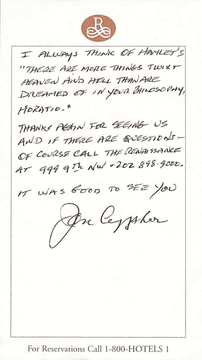 R
I ALWAYS THINK OF HAMLET'S
"THERE ARE MORE THINGS TWIXT
HEAVEN AND HELL THAN ARE
DREAMED OF IN YOUR PHILOSOPHY,
HORATIO."
THANKS AGAIN FOR SEEING US
AND IF THERE ARE QUESTIONS—
OF COURSE CALL THE RENAISSANCE
AT 999 9TH NW - 202 898-9000.
IT WAS GOOD TO SEE YOU
For Reservations Call 1-800-HOTELS 1